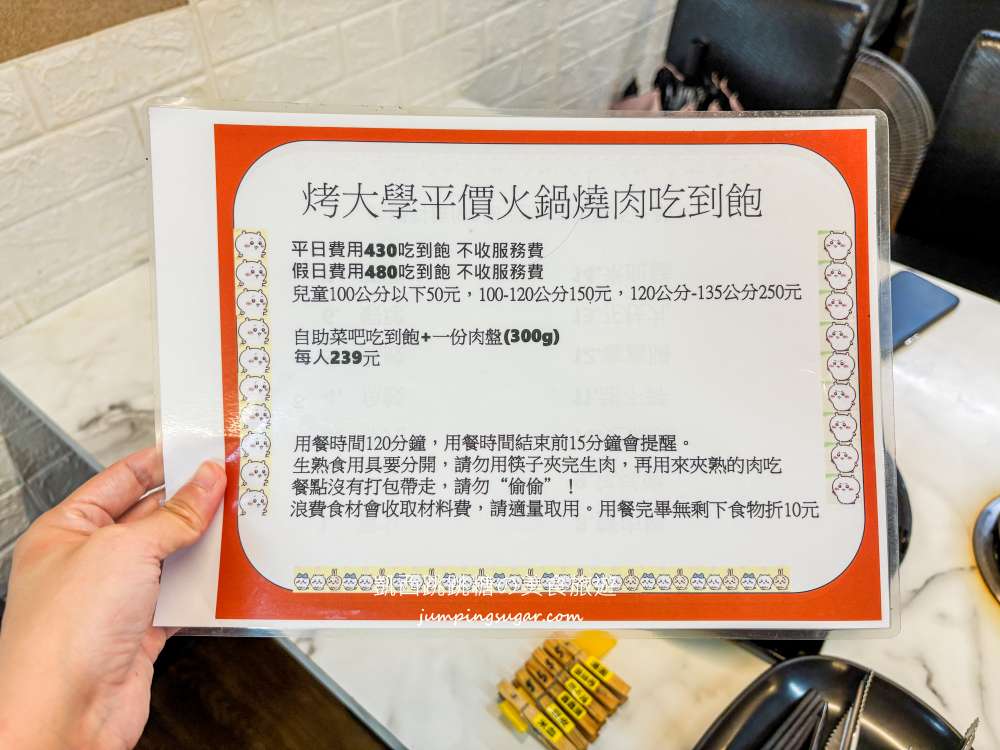 烤大學平價火鍋燒肉吃到飽
平日費用430吃到飽 不收服務費
假日費用480吃到飽 不收服務費
兒童100公分以下50元，100-120公分150元，120公分-135公分250元
自助菜吧吃到飽+一份肉盤(300g)
每人239元
用餐時間120分鐘，用餐時間結束前15分鐘會提醒。
生熟食用具要分開，請勿用筷子夾完生肉，再用來夾熟的肉吃
餐點沒有打包帶走，請勿“偷偷”！
浪費食材會收取材料費，請適量取用。用餐完畢無剩下食物折10元
凱西跳跳糖の美食旅遊
jumpingsugar.com